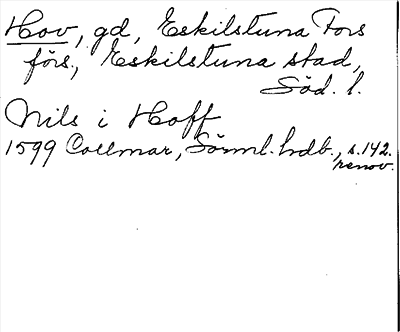 Hov, gd, Eskilstuna Fors
förs., Eskilstuna stad,
Söd. l.
Nils i Hoff
1599 Collmar, Sörml. hdb., s. 142.
renov.